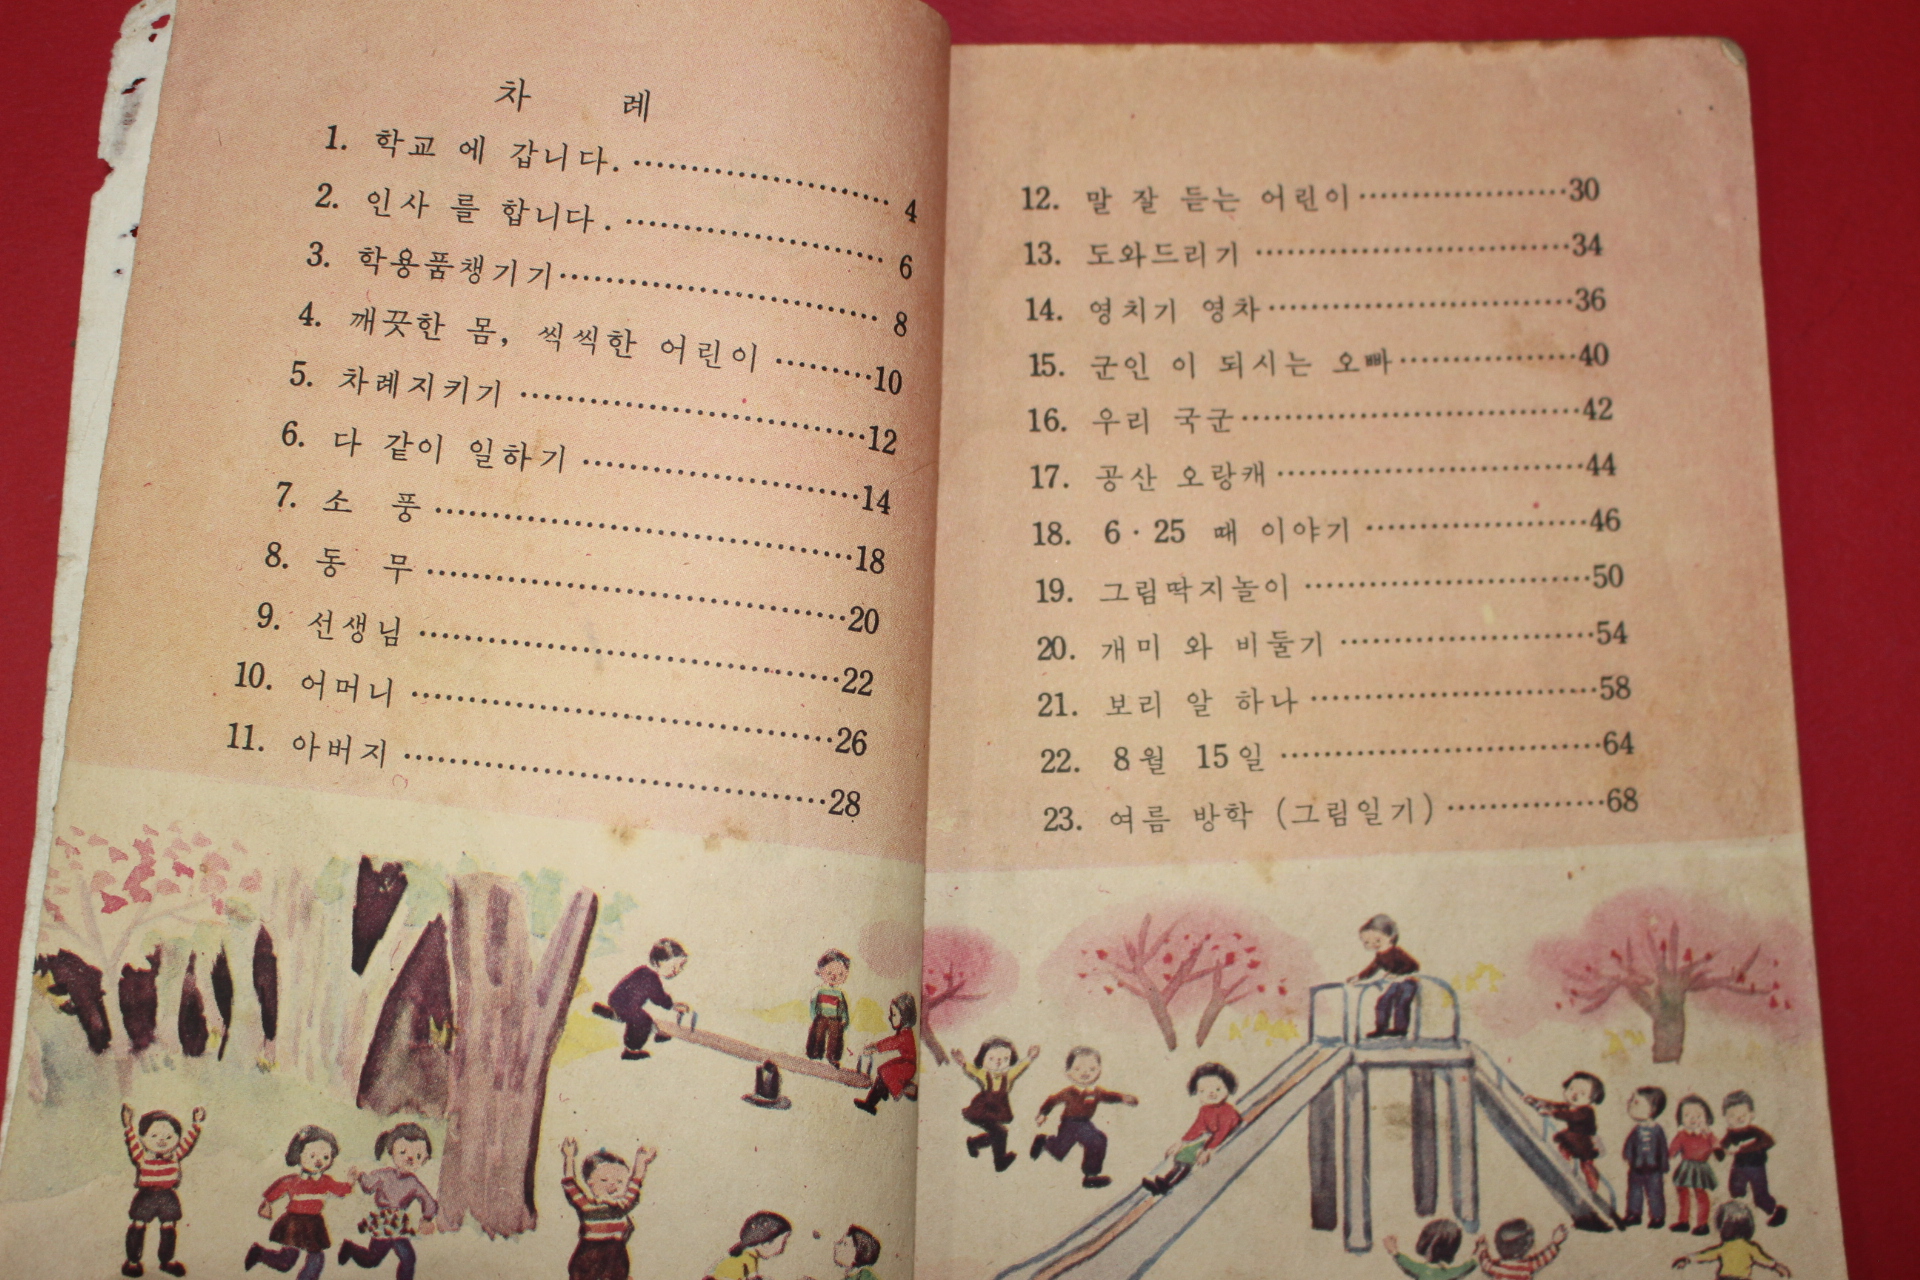 차 례
1. 학교 에 갑니다. ························ 4
2. 인사 를 합니다. ························ 6
3. 학용품챙기기 ························ 8
4. 깨끗한 몸, 씩씩한 어린이 ·········10
5. 차례지키기 ························12
6. 다 같이 일하기 ························14
7. 소 풍 ························18
8. 동 무 ························20
9. 선생님 ························22
10. 어머니 ························26
11. 아버지 ························28
12. 말 잘 듣는 어린이 ························30
13. 도와드리기 ························34
14. 영치기 영차 ························36
15. 군인 이 되시는 오빠 ··················40
16. 우리 국군 ························42
17. 공산 오랑캐 ························44
18. 6·25 때 이야기 ························46
19. 그림딱지놀이 ························50
20. 개미 와 비둘기 ························54
21. 보리 알 하나 ························58
22. 8월 15일 ························64
23. 여름 방학 (그림일기) ···············68